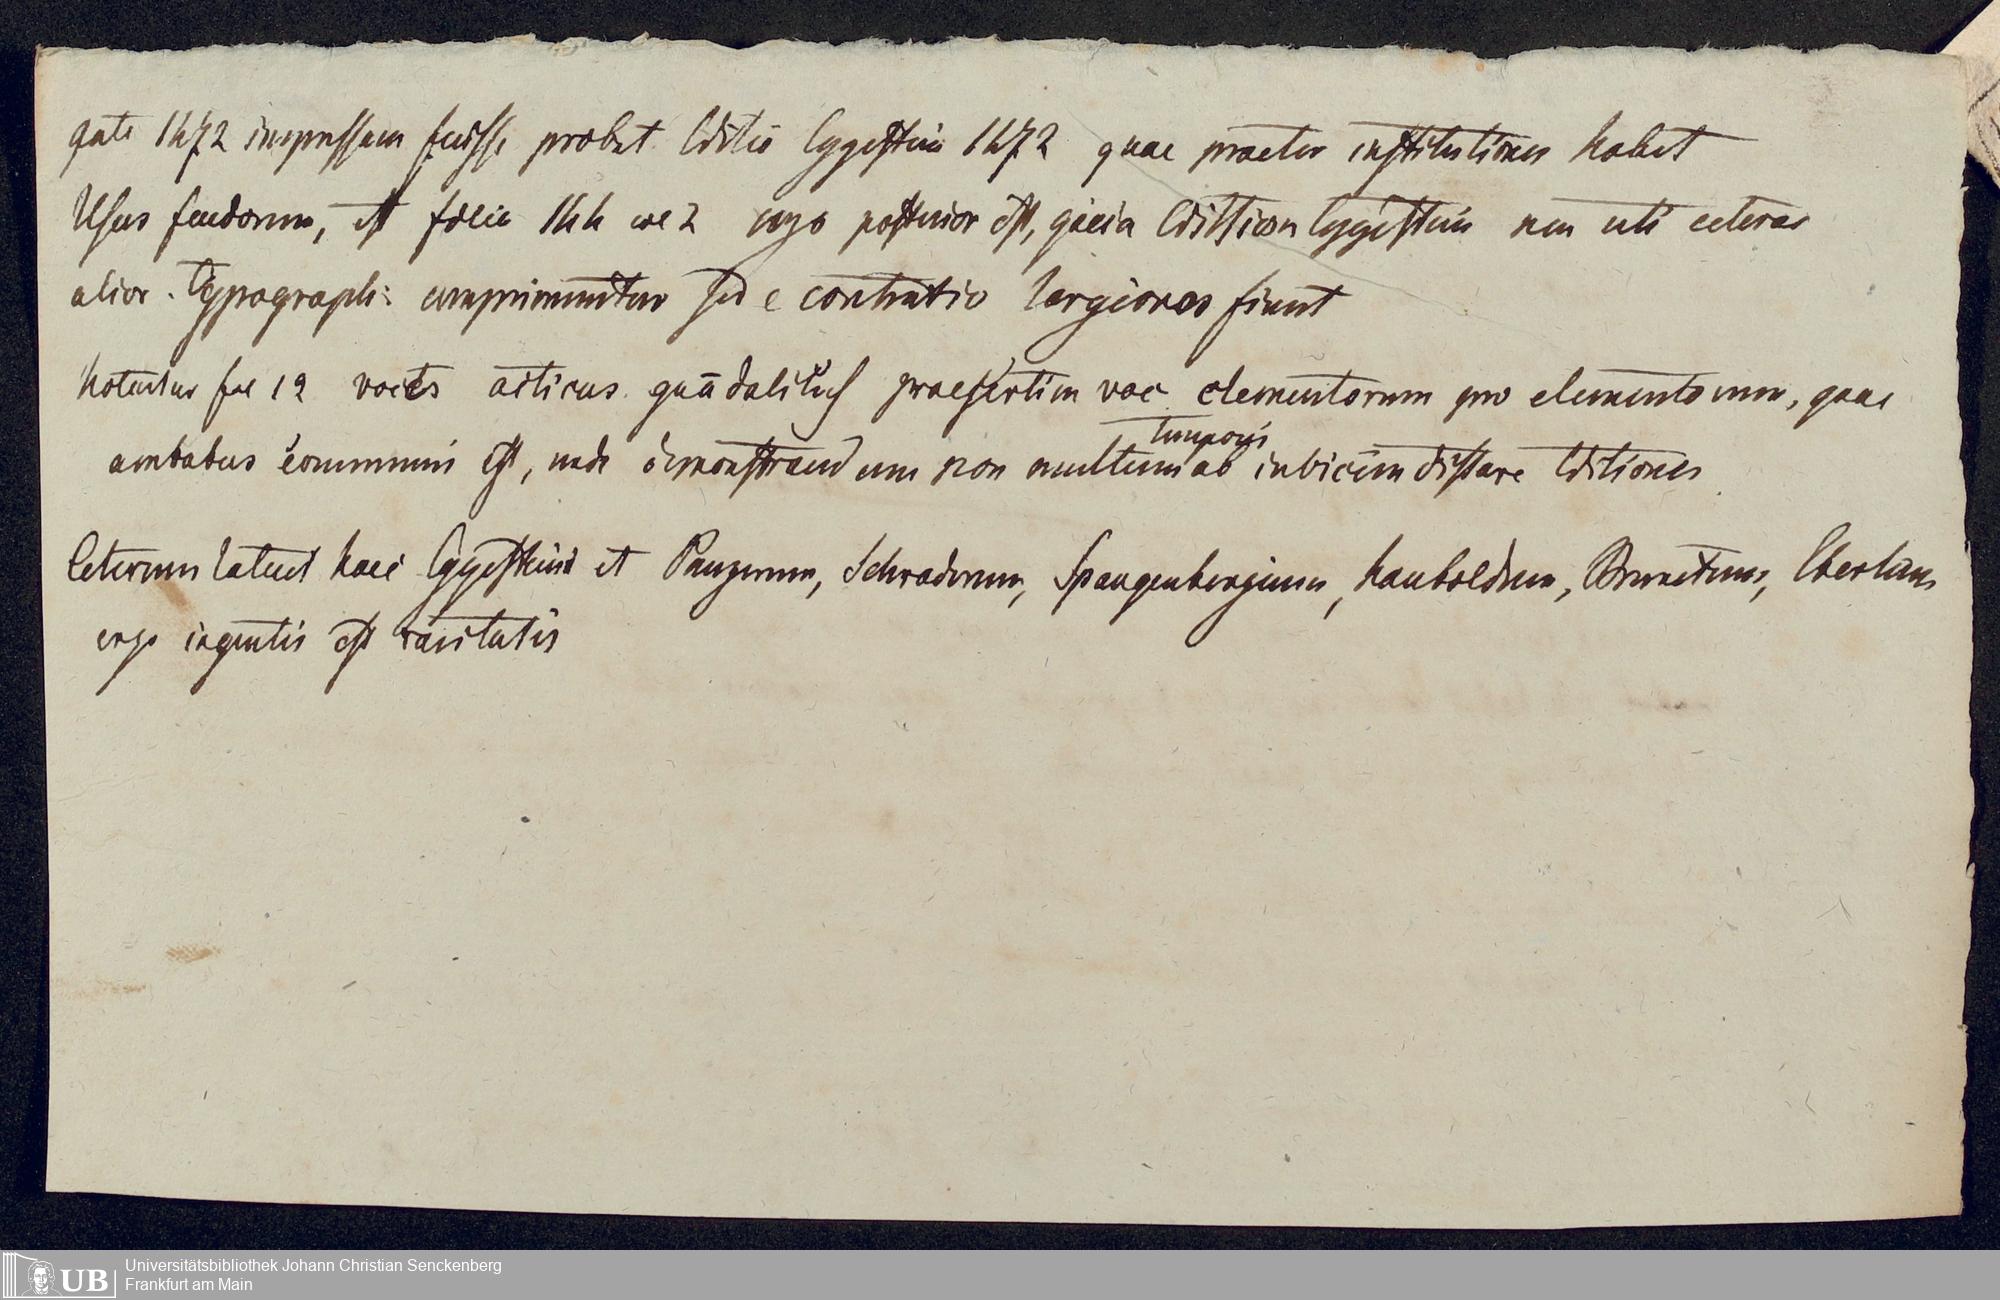 gate 1472 impressam fuisse probat Editio Eggesteini 1472 quae praeter institutiones habet
Usus feudorum, est folia 144 col 2 ergo posterior est, quia Editiones Eggesteini non uti ceteras
alior. Typograph: comprimuntur sed e contratio largiores fiunt
Notentur fol 12 voces praesertim voc elementorum pro elementorum, quae
ambabus communis est, unde demonstrandum non multum ab invicem distare Editiones
temporis
Ceterum latuit haec Eggesteini et Panzerum, Schraderum, Spangenbergium, Hauboldum, Brunetum, Ebertum
ergo ingentis est raritatis
Universitätsbibliothek Johann Christian Senckenberg
Frankfurt am Main
UB